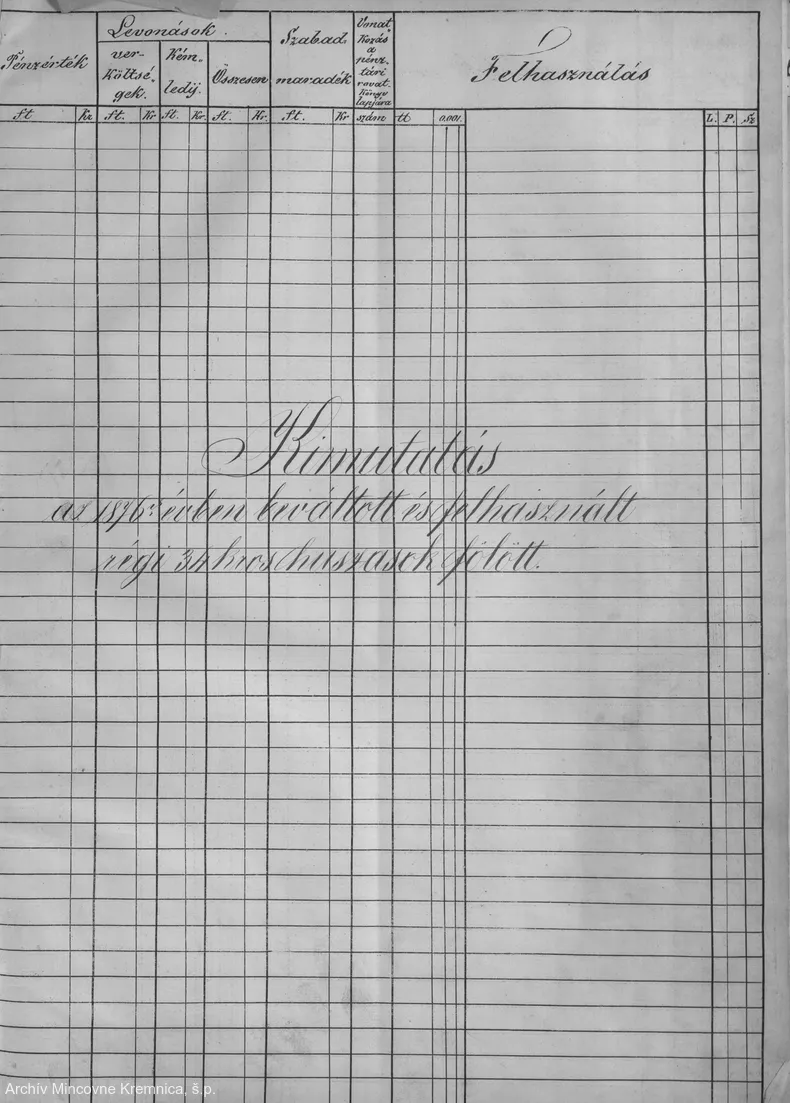 Pénzérték
Levonások.
ver-
költsé-
gek.
Kém-
ledij.
Összesen
Szabad
maradék
Vonat
kozás
a
pénz-
tári
rovat.
könyv
lapjára
Felhasználás
ft
Kr
ft.
Kr
ft.
Kr.
ft.
Kr.
ft.
Kr
szám
tt
0.001.
L.
P.
Sz
Kimutatás
az 1876 évben beváltott és felhasznált
régi 34 kros huszasok fölött.
Archív Mincovne Kremnica, š.p.